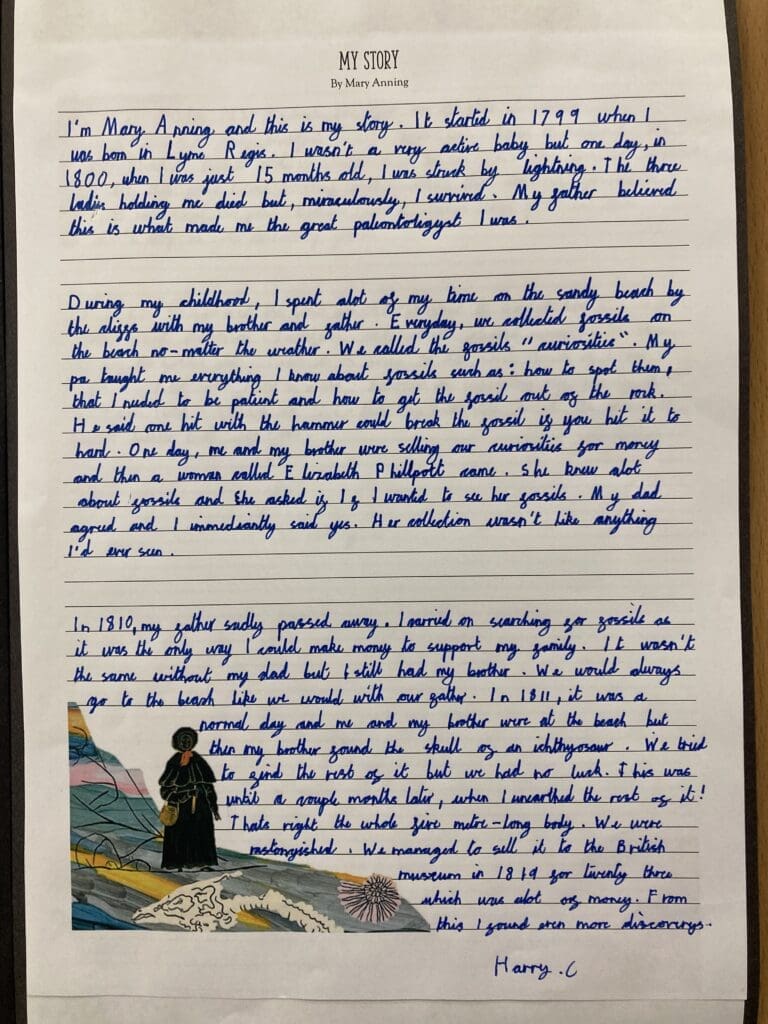 MY STORY
By Mary Anning
I'm Mary Anning and this is my story. It started in 1799 when I
was born in Lyme Regis. I wasn't a very active baby but one day, in
1800, when I was just 15 months old, I was struck by lightning. The three
ladies holding me died but, miraculously, I survived. My father believed
this is what made me the great paleontoligyst I was.
During my childhood, I spent alot of my time on the sandy beach by
the cliffs with my brother and father. Everyday, we collected fossils on
the beach no-matter the weather. We called the fossils "curiosities". My
pa taught me everything I know about fossils such as: how to spot them,
that I needed to be patient and how to get the fossil out of the rock.
He said one hit with the hammer could break the fossil if you hit it to
hard. One day, me and my brother were selling our curiosities for money
and then a woman called Elizabeth Phillpott came. She knew alot
about fossils and she asked if If I wanted to see her fossils. My dad
agreed and I immediantly said yes. Her collection wasn't like anything
I'd ever seen.
In 1810, my father sadly passed away. I carried on searching for fossils as
it was the only way I could make money to support my family. It wasn't
the same without my dad but I still had my brother. We would always
go to the beach like we would with our father. In 1811, it was a
normal day and me and my brother were at the beach but
then my brother found the skull of an ichthyosaur. We tried
to find the rest of it but we had no luck. This was
until a couple months later, when I unearthed the rest of it!
Thats right the whole five metre-long body. We were
astonyished. We managed to sell it to the British
museum in 1819 for twenty three
which was alot of money. From
this I found even more discoverys.
Harry.C